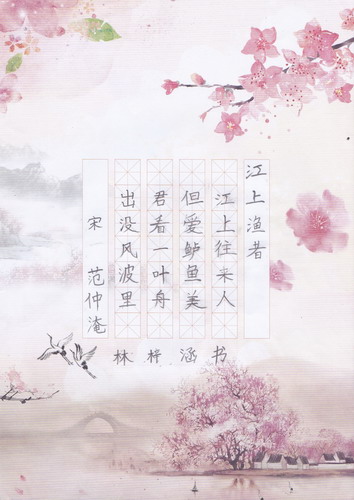 江上渔者
江上往来人
但爱鲈鱼美
君看一叶舟
出没风波里
宋 范仲淹
林梓涵书